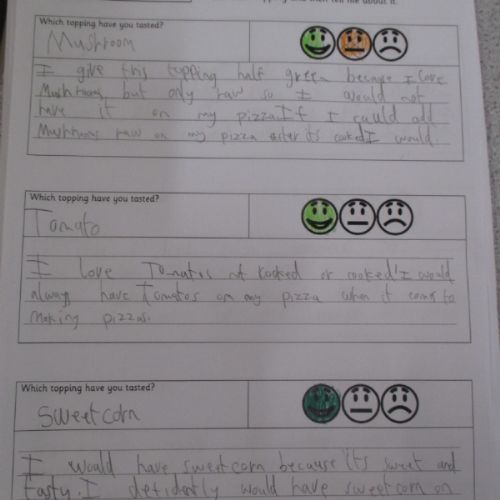 topping and then tell me about it.
Which topping have you tasted?
Mushroom
I give this topping half green because I love
Mushrooms but only raw so I would not
have it on my pizza. If I could add
Mushrooms raw on my pizza after its cooked I would.
Which topping have you tasted?
Tomato
I love Tomatos not cooked or cooked! I would
always have Tomatos on my pizza when it comes to
making pizzas.
Which topping have you tasted?
Sweetcorn
I would have sweetcorn because its sweet and
tasty. I defidently would have sweetcorn on